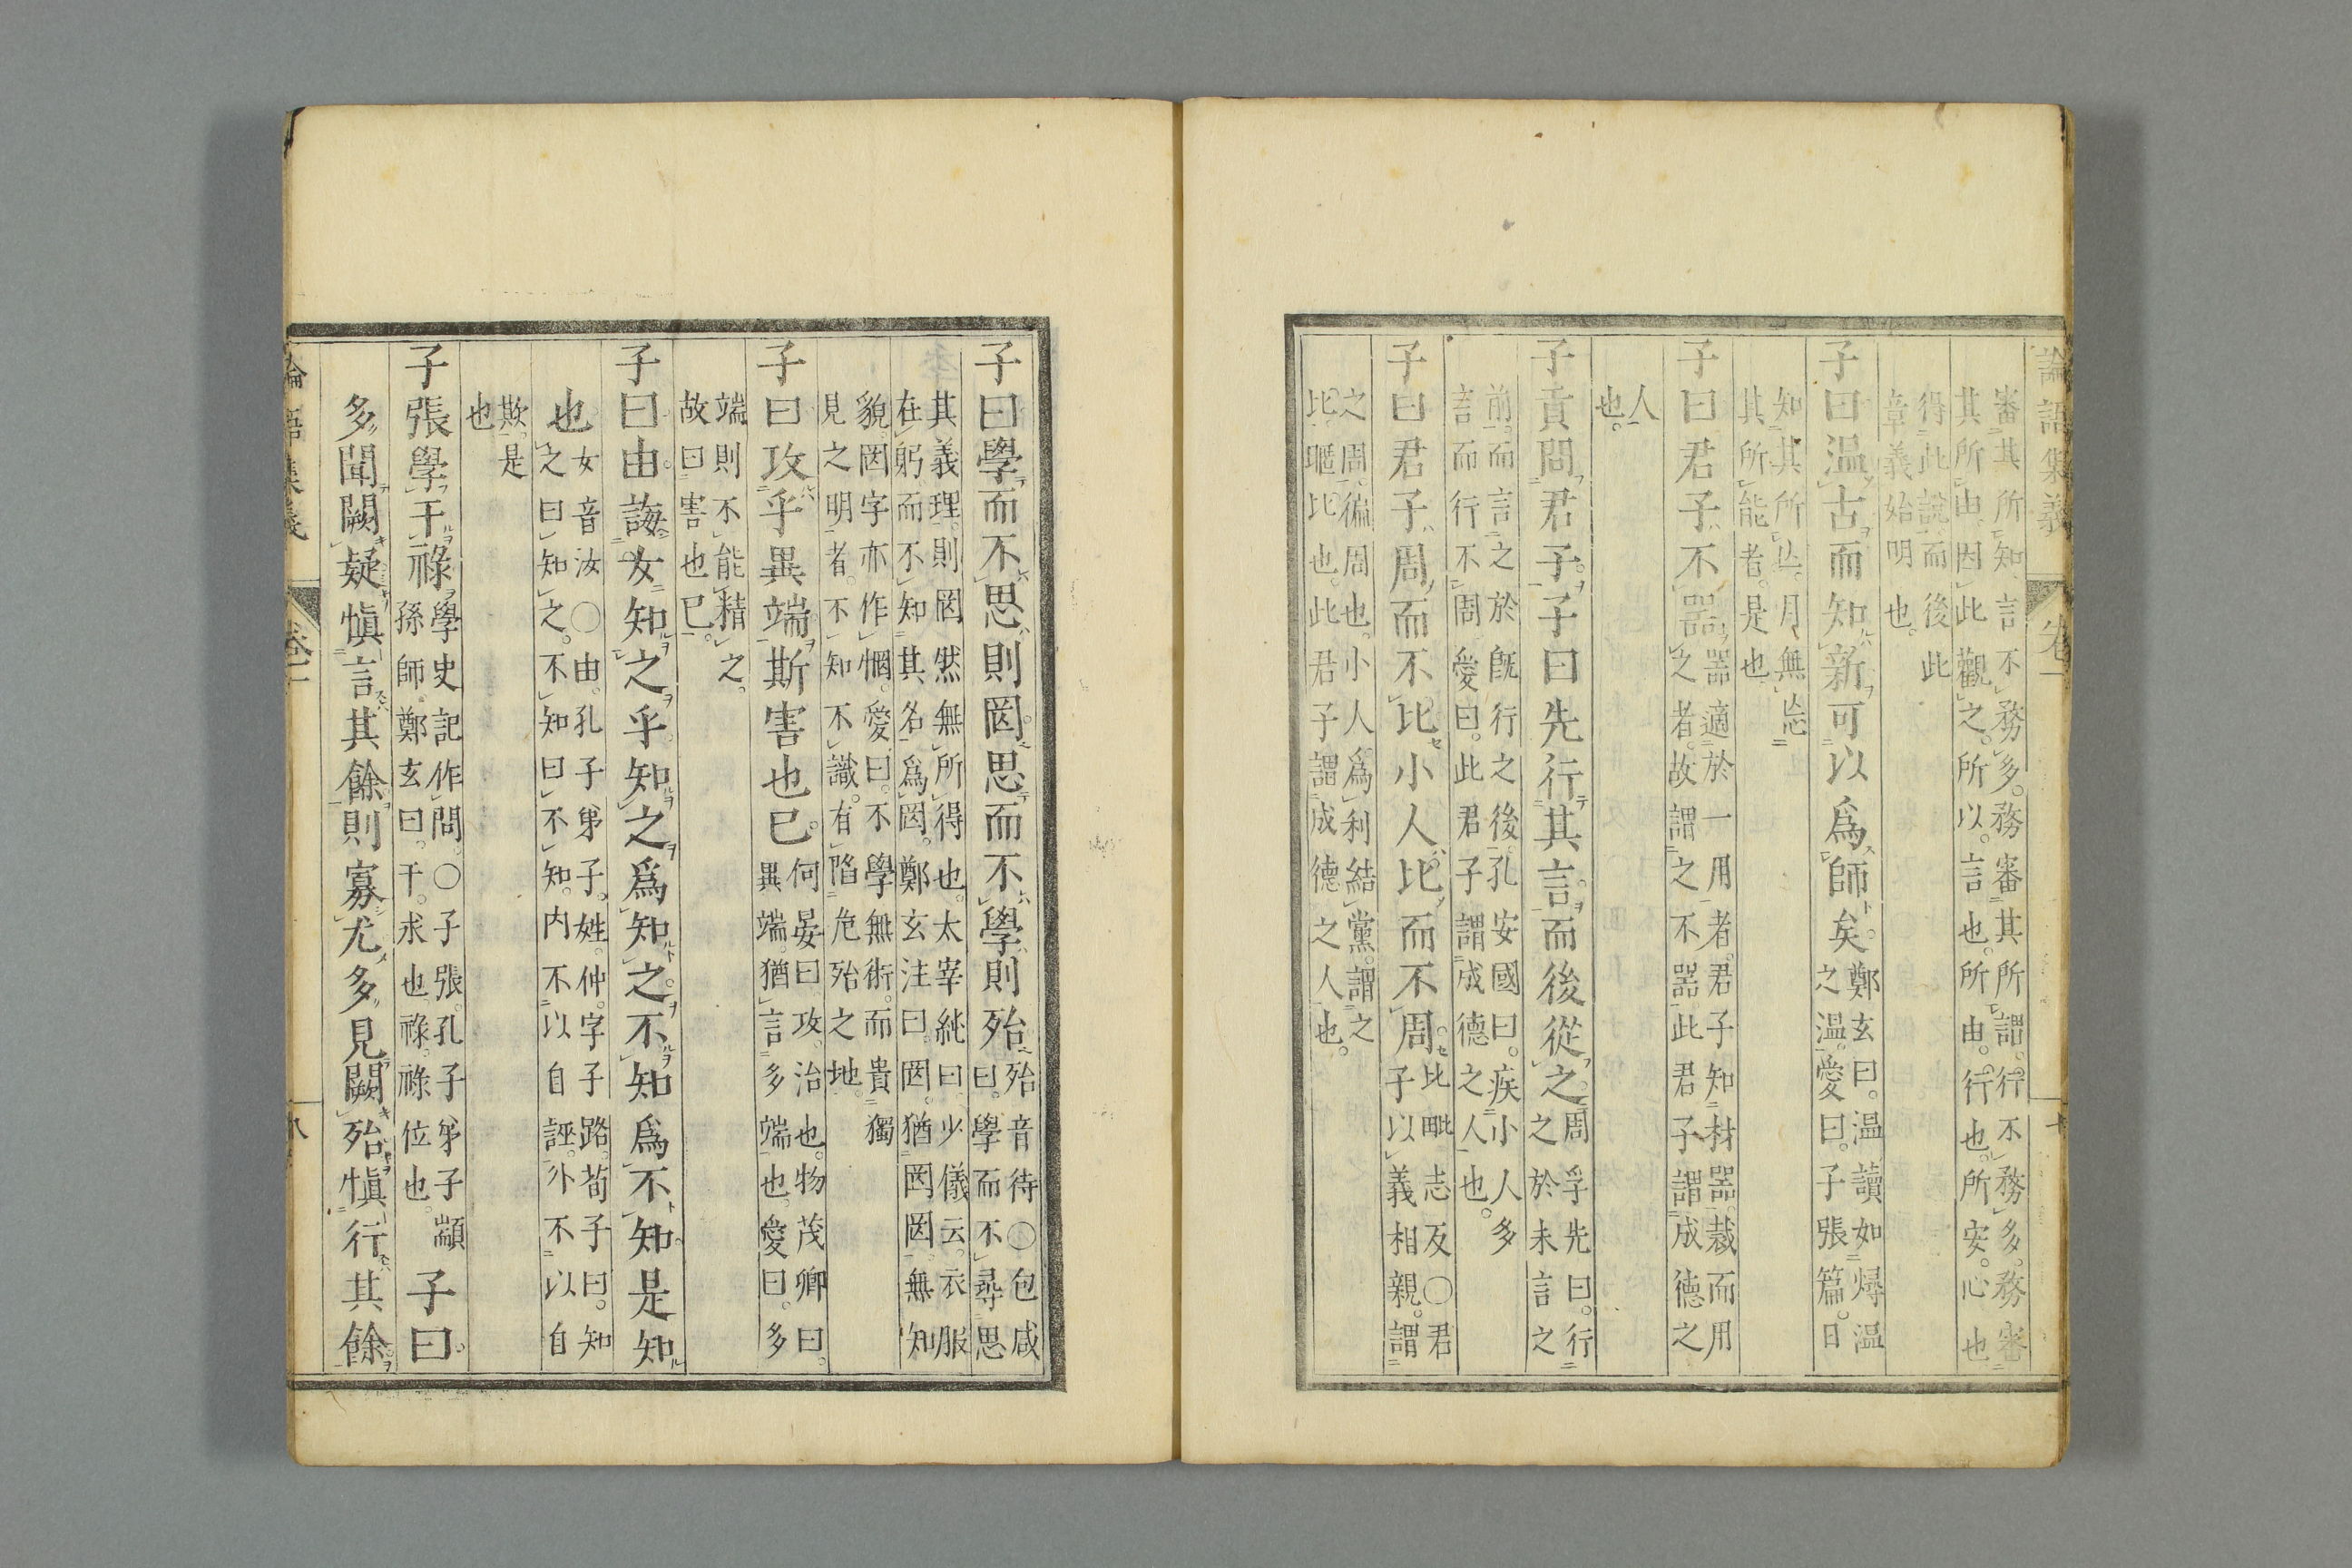 論語集義 卷一
審其所知言不務多。務審其所謂。行不務多。務審
其所由。因此觀之。所以。言也。所由。行也。所安。心也
得此說而後此
章義始明也。
子曰温古而知新可以爲師矣。
鄭玄曰。温讀如燖温
之温。愛曰。子張篇。日
知其所亾。月無忘
其所能者。是也
子曰君子不器
器適於一用者。君子知材器。裁而用
之者。故謂之不器此君子謂成德之
人
也。
子貢問君子。子曰先行其言。而後從之。
周孚先曰。行
之於未言之
前。而言之於旣行之後。孔安國曰。疾小人多
言而行不周愛曰。此君子謂成德之人也。
子曰君子周而不比小人比而不周
比毗志反〇君
子以義相親。謂
之周。徧周也。小人爲利結黨。謂之
比。暱比也。此君子謂成德之人也。
子曰學而不思則罔。思而不學則殆
殆音待〇包咸
曰。學而不尋思
其義理。則罔然無所得也。太宰純曰。少儀云。衣服
在躬而不知其名爲罔。鄭玄注曰。罔。猶罔罔。無知
貌。罔字亦作惘。愛曰。不學無術。而貴獨
見之明者。不知不識。有陷危殆之地。
子曰攻乎異端。斯害也已。
何晏曰攻。治也。物茂卿曰。
異端。猶言多端也。愛曰。多
端則不能精之。
故曰害也已。
子曰由。誨女知之乎。知之爲知之。不知爲不知。是知
也
女音汝〇由。孔子弟子。姓仲。字子路。荀子曰。知
之曰知之。不知曰不知。内不以自誣。外不以自
欺。是
也
子張學干祿
學史記作問。〇子張。孔子弟子顓
孫師。鄭玄曰。干。求也。祿。祿位也。
子曰。
多聞闕疑愼言其餘則寡尤多見闕殆愼行其餘
論語集義 卷一